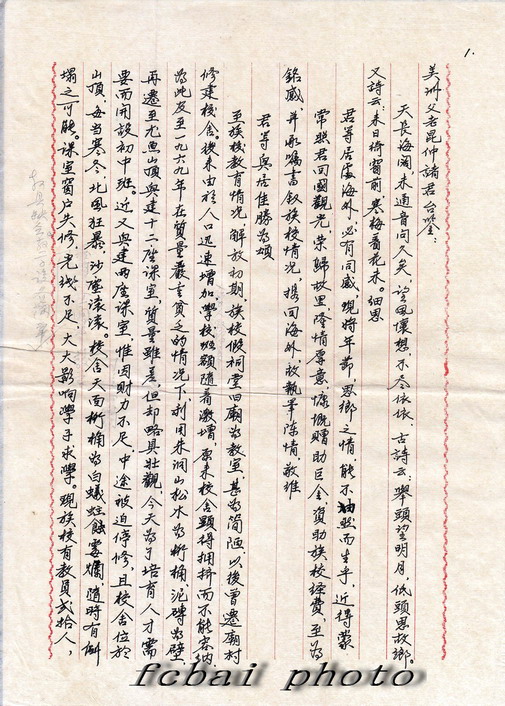 1.
美洲父老昆仲諸君台鉴：
天長海闊，未通音问久矣，望風懷想，不尽依依，古詩云：舉頭望明月，低頭思故鄉。
又詩云：来日绮窗前，寒梅着花未。细思
君等居處海外，必有同感，現将年節，思鄉之情，能不油然而生乎，近得蒙
常照君回國觀光，荣歸故里，隆情厚意，慷慨赠助巨金資助族校经费，至为
銘感，并承嘱書叙族校情况，携回海外，故執筆陈情，敬维
君等與居佳勝为頌
至族校教育情况，解放初期，族校假祠堂旧廟为教室，甚为简陋，以後曾遷廟村
修建校舍。後来由於人口迅速增加，學校班额隨着激增，原来校舍顯得拥挤，而不能容纳，
为此友至一九六九年在质量嚴言贫乏的情况下，利用朱洞山松水为桁桷，泥磚为壁，
再遷至尤鱼山頂興建十二座课室，質量雖差，但却略具壯觀，今天为了培育人才需
要而開設初中班。近又興建两座课室，惟因財力不足，中途被迫停修，且校舍位於
山頂，每当寒冬，北風狂暴，沙塵滚滚。校舍天面桁桷为白蟻蛀蝕霉爛，隨時有倒
塌之可能。课室窗户失修，光线不足，大大影响學子求學。現族校有教員弍拾人，
fcbai photo